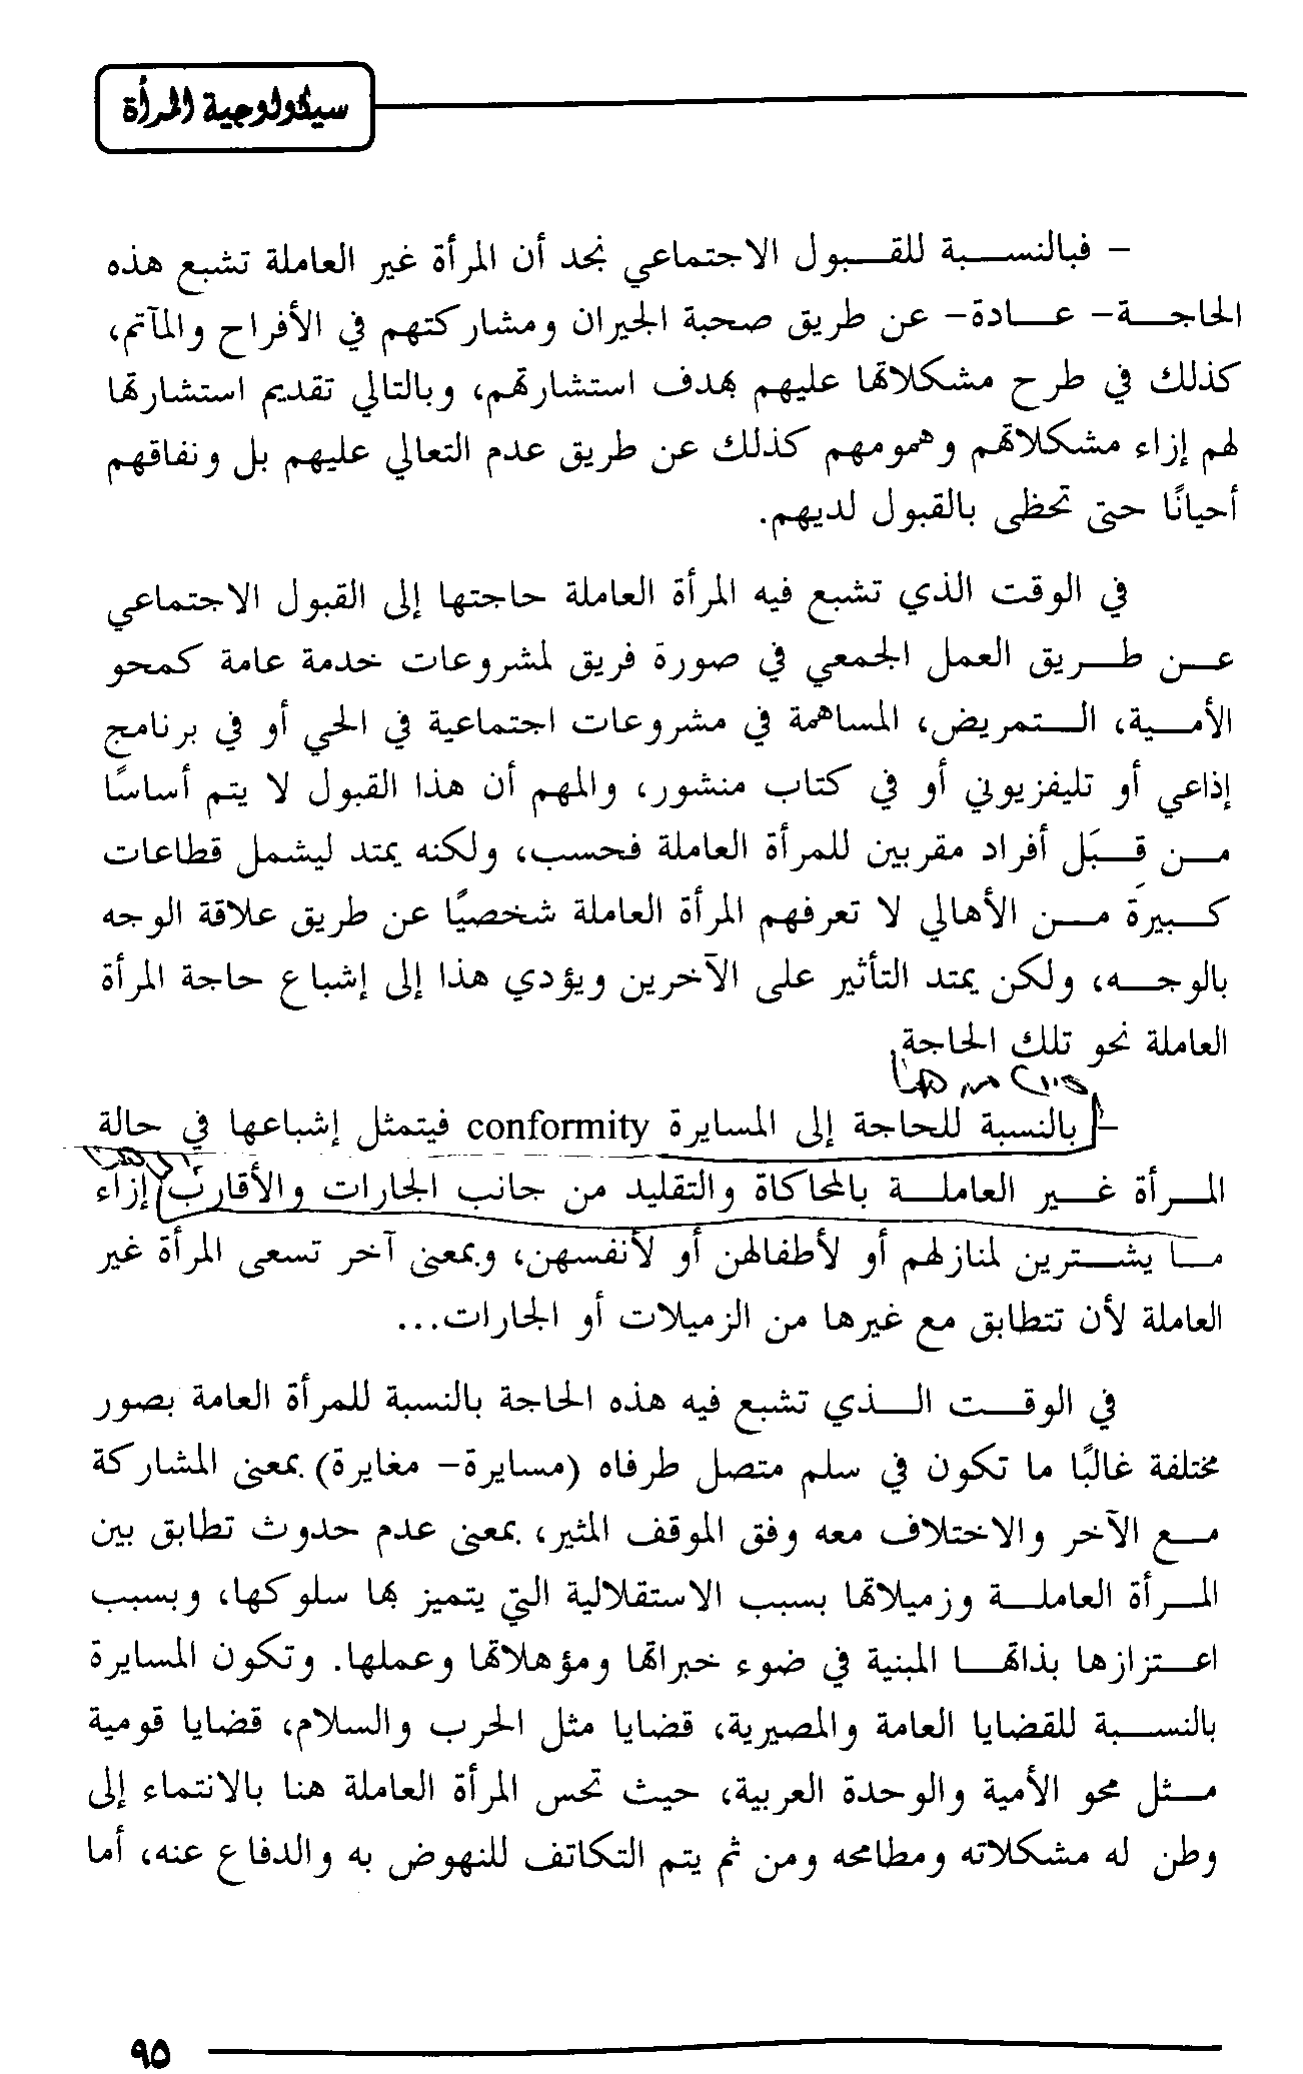 سيكولوجية المرأة
– فبالنسبة للقبول الاجتماعي نجد أن المرأة غير العاملة تشبع هذه
الحاجة– عادة– عن طريق صحبة الجيران ومشاركتهم في الأفراح والمآتم،
كذلك في طرح مشكلاتها عليهم بهدف استشارتهم، وبالتالي تقديم استشارتها
لهم إزاء مشكلاتهم وهمومهم كذلك عن طريق عدم التعالي عليهم بل ونفاقهم
أحيانًا حتى تحظى بالقبول لديهم.
في الوقت الذي تشبع فيه المرأة العاملة حاجتها إلى القبول الاجتماعي
عن طريق العمل الجمعي في صورة فريق لمشروعات خدمة عامة كمحو
الأمية، التمريض، المساهمة في مشروعات اجتماعية في الحي أو في برنامج
إذاعي أو تليفزيوني أو في كتاب منشور، والمهم أن هذا القبول لا يتم أساسًا
من قِبَل أفراد مقربين للمرأة العاملة فحسب، ولكنه يمتد ليشمل قطاعات
كبيرة من الأهالي لا تعرفهم المرأة العاملة شخصيًا عن طريق علاقة الوجه
بالوجه، ولكن يمتد التأثير على الآخرين ويؤدي هذا إلى إشباع حاجة المرأة
العاملة نحو تلك الحاجة.
من هنا
– بالنسبة للحاجة إلى المسايرة conformity فيتمثل إشباعها في حالة
الى هنا
المرأة غير العاملة بالمحاكاة والتقليد من جانب الجارات والأقارب إزاء
ما يشترين لمنازلهم أو لأطفالهن أو لأنفسهن، وبمعنى آخر تسعى المرأة غير
العاملة لأن تتطابق مع غيرها من الزميلات أو الجارات...
في الوقت الذي تشبع فيه هذه الحاجة بالنسبة للمرأة العامة بصور
مختلفة غالبًا ما تكون في سلم متصل طرفاه (مسايرة– مغايرة) بمعنى المشاركة
مع الآخر والاختلاف معه وفق الموقف المثير، بمعنى عدم حدوث تطابق بين
المرأة العاملة وزميلاتها بسبب الاستقلالية التي يتميز بها سلوكها، وبسبب
اعتزازها بذاتها المبنية في ضوء خبراتها ومؤهلاتها وعملها. وتكون المسايرة
بالنسبة للقضايا العامة والمصيرية، قضايا مثل الحرب والسلام، قضايا قومية
مثل محو الأمية والوحدة العربية، حيث تحس المرأة العاملة هنا بالانتماء إلى
وطن له مشكلاته ومطامحه ومن ثم يتم التكاتف للنهوض به والدفاع عنه، أما
٩٥